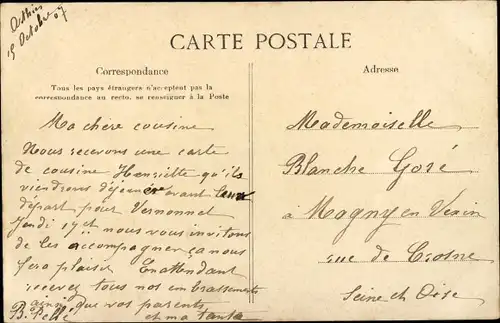 Authies
15 Octobre 07
CARTE POSTALE
Correspondance
Tous les pays étrangers n'acceptent pas la
correspondance au recto, se renseigner à la Poste
Adresse
Ma chere cousine
Nous recevons une carte
de cousine Henriette qu'ils
viendrons déjeuner avant leur
départ pour Vernonnet
Jeudi 17 ct nous vous invitons
de les accompagner ça nous
fera plaisir En attendant
recevez tous nos embrassements
ainsi que vos parents
B. Pellé et ma tante
Mademoiselle
Blanche Goré
à Magny en Vexin
rue de Crosne
Seine et Oise